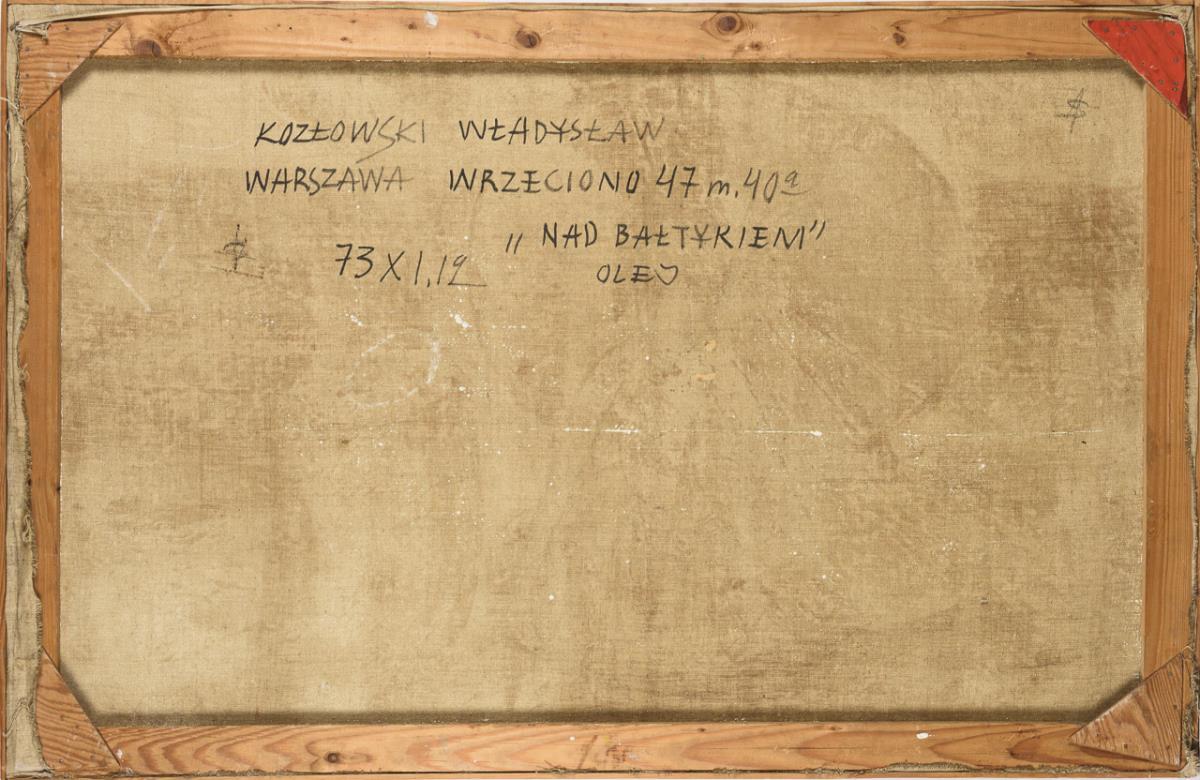 KOZŁOWSKI WŁADYSŁAW
WARSZAWA WRZECIONO 47 m. 40a
„NAD BAŁTYKIEM”
73 X 1,19
OLEJ